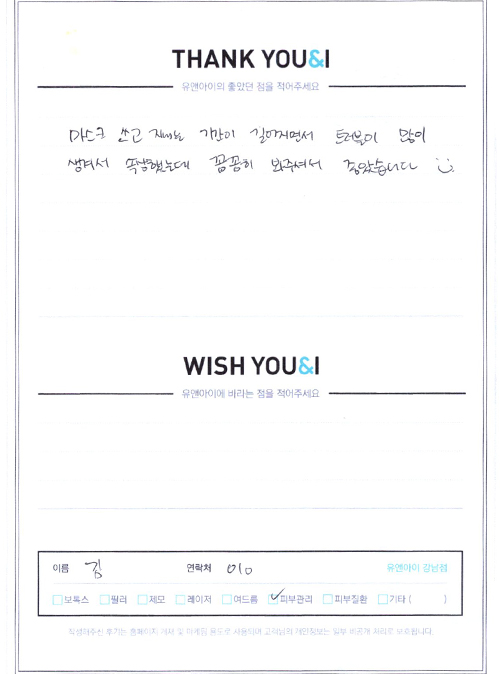 THANK YOU&I
유앤아이의 좋았던 점을 적어주세요
마스크 쓰고 지내는 기간이 길어지면서 트러블이 많이
생겨서 속상했는데 꼼꼼히 봐주셔서 좋았습니다
WISH YOU&I
유앤아이에 바라는 점을 적어주세요
이름 김 연락처 010 유앤아이 강남점
보톡스 필러 제모 레이저 여드름 피부관리 피부질환 기타 ( )
작성해주신 후기는 홈페이지 게재 및 마케팅 용도로 사용되며 고객님의 개인정보는 일부 비공개 처리로 보호됩니다.